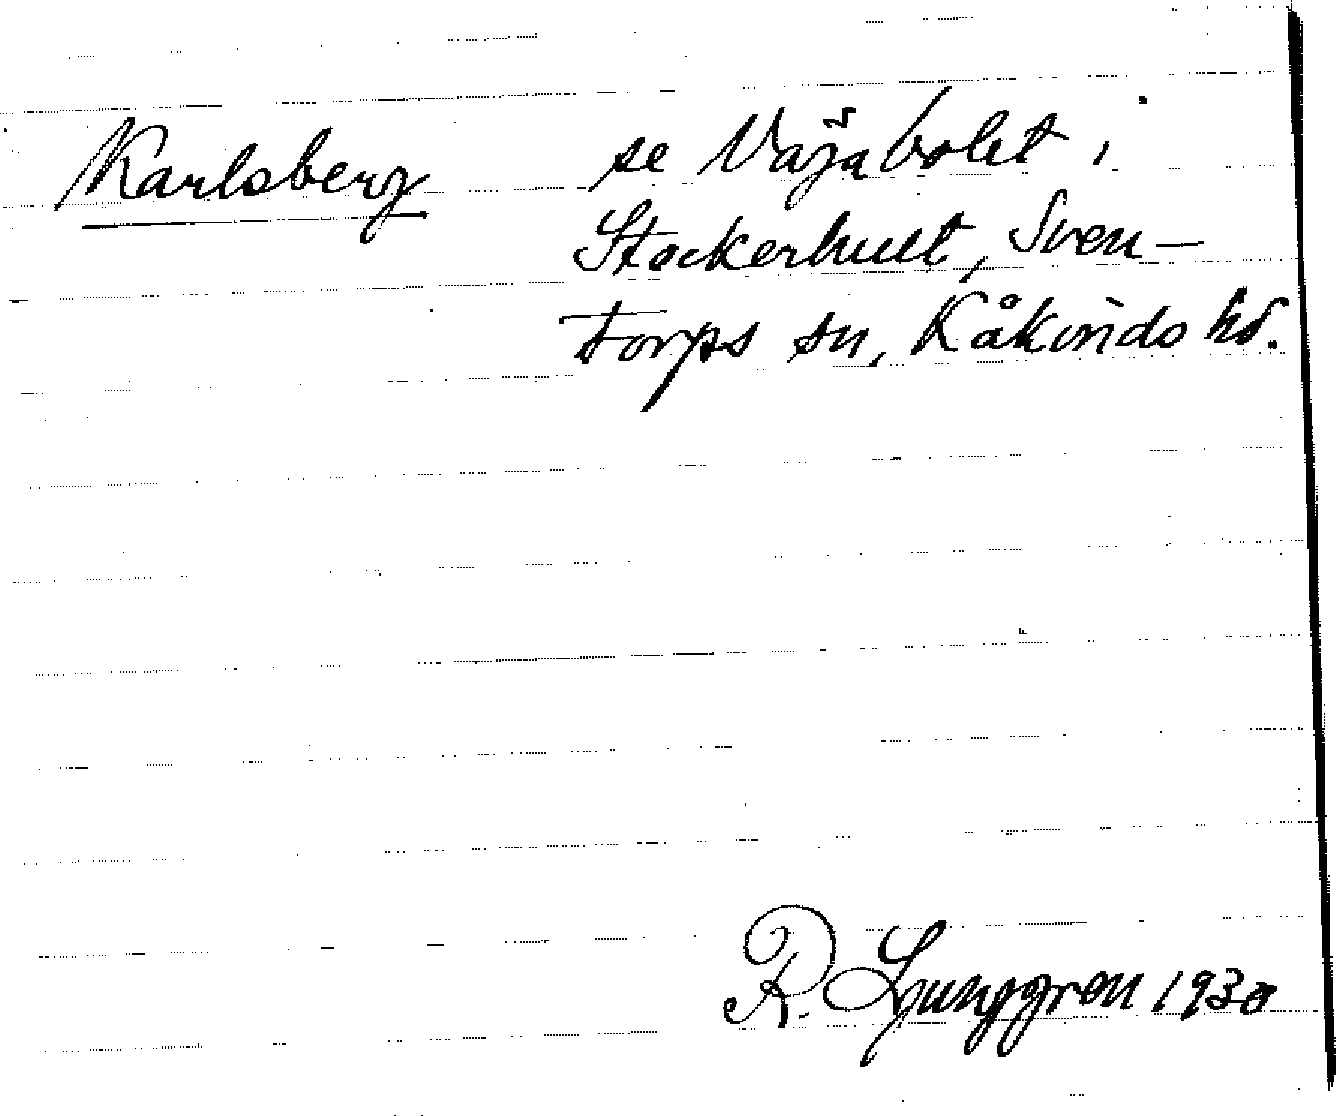 Karlsberg se Väjabolet i
Stockerhult, Sven-
torps sn, Kåkinds hd.
R. Ljunggren 1930